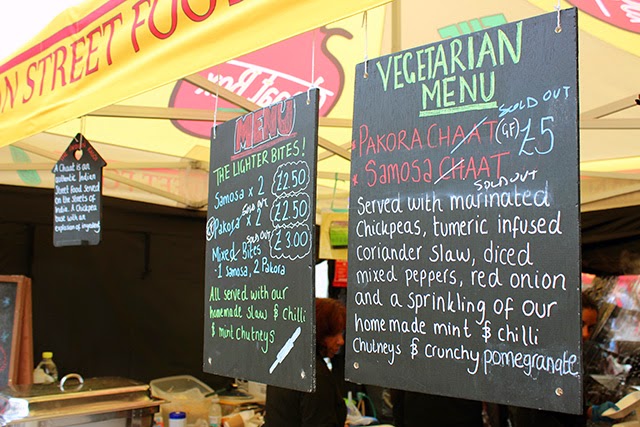 ON STREET FOOD
A Chaat is an
authentic Indian
Street Food served
on the Streets of
India. A Chickpea
treat with an
explosion of
MENU
THE LIGHTER BITES!
Samosa x 2 £2.50
Pakora x 2 £2.50
SOLD OUT
Mixed Bites £3.00
SOLD OUT
- 1 Samosa, 2 Pakora
All served with our
homemade slaw & chilli
& mint chutneys
VEGETARIAN
MENU
SOLD OUT
* PAKORA CHAAT (GF) £5
* SAMOSA CHAAT
SOLD OUT
Served with marinated
Chickpeas, tumeric infused
coriander slaw, diced
mixed peppers, red onion
and a sprinkling of our
homemade mint & chilli
Chutneys & crunchy pomegranate